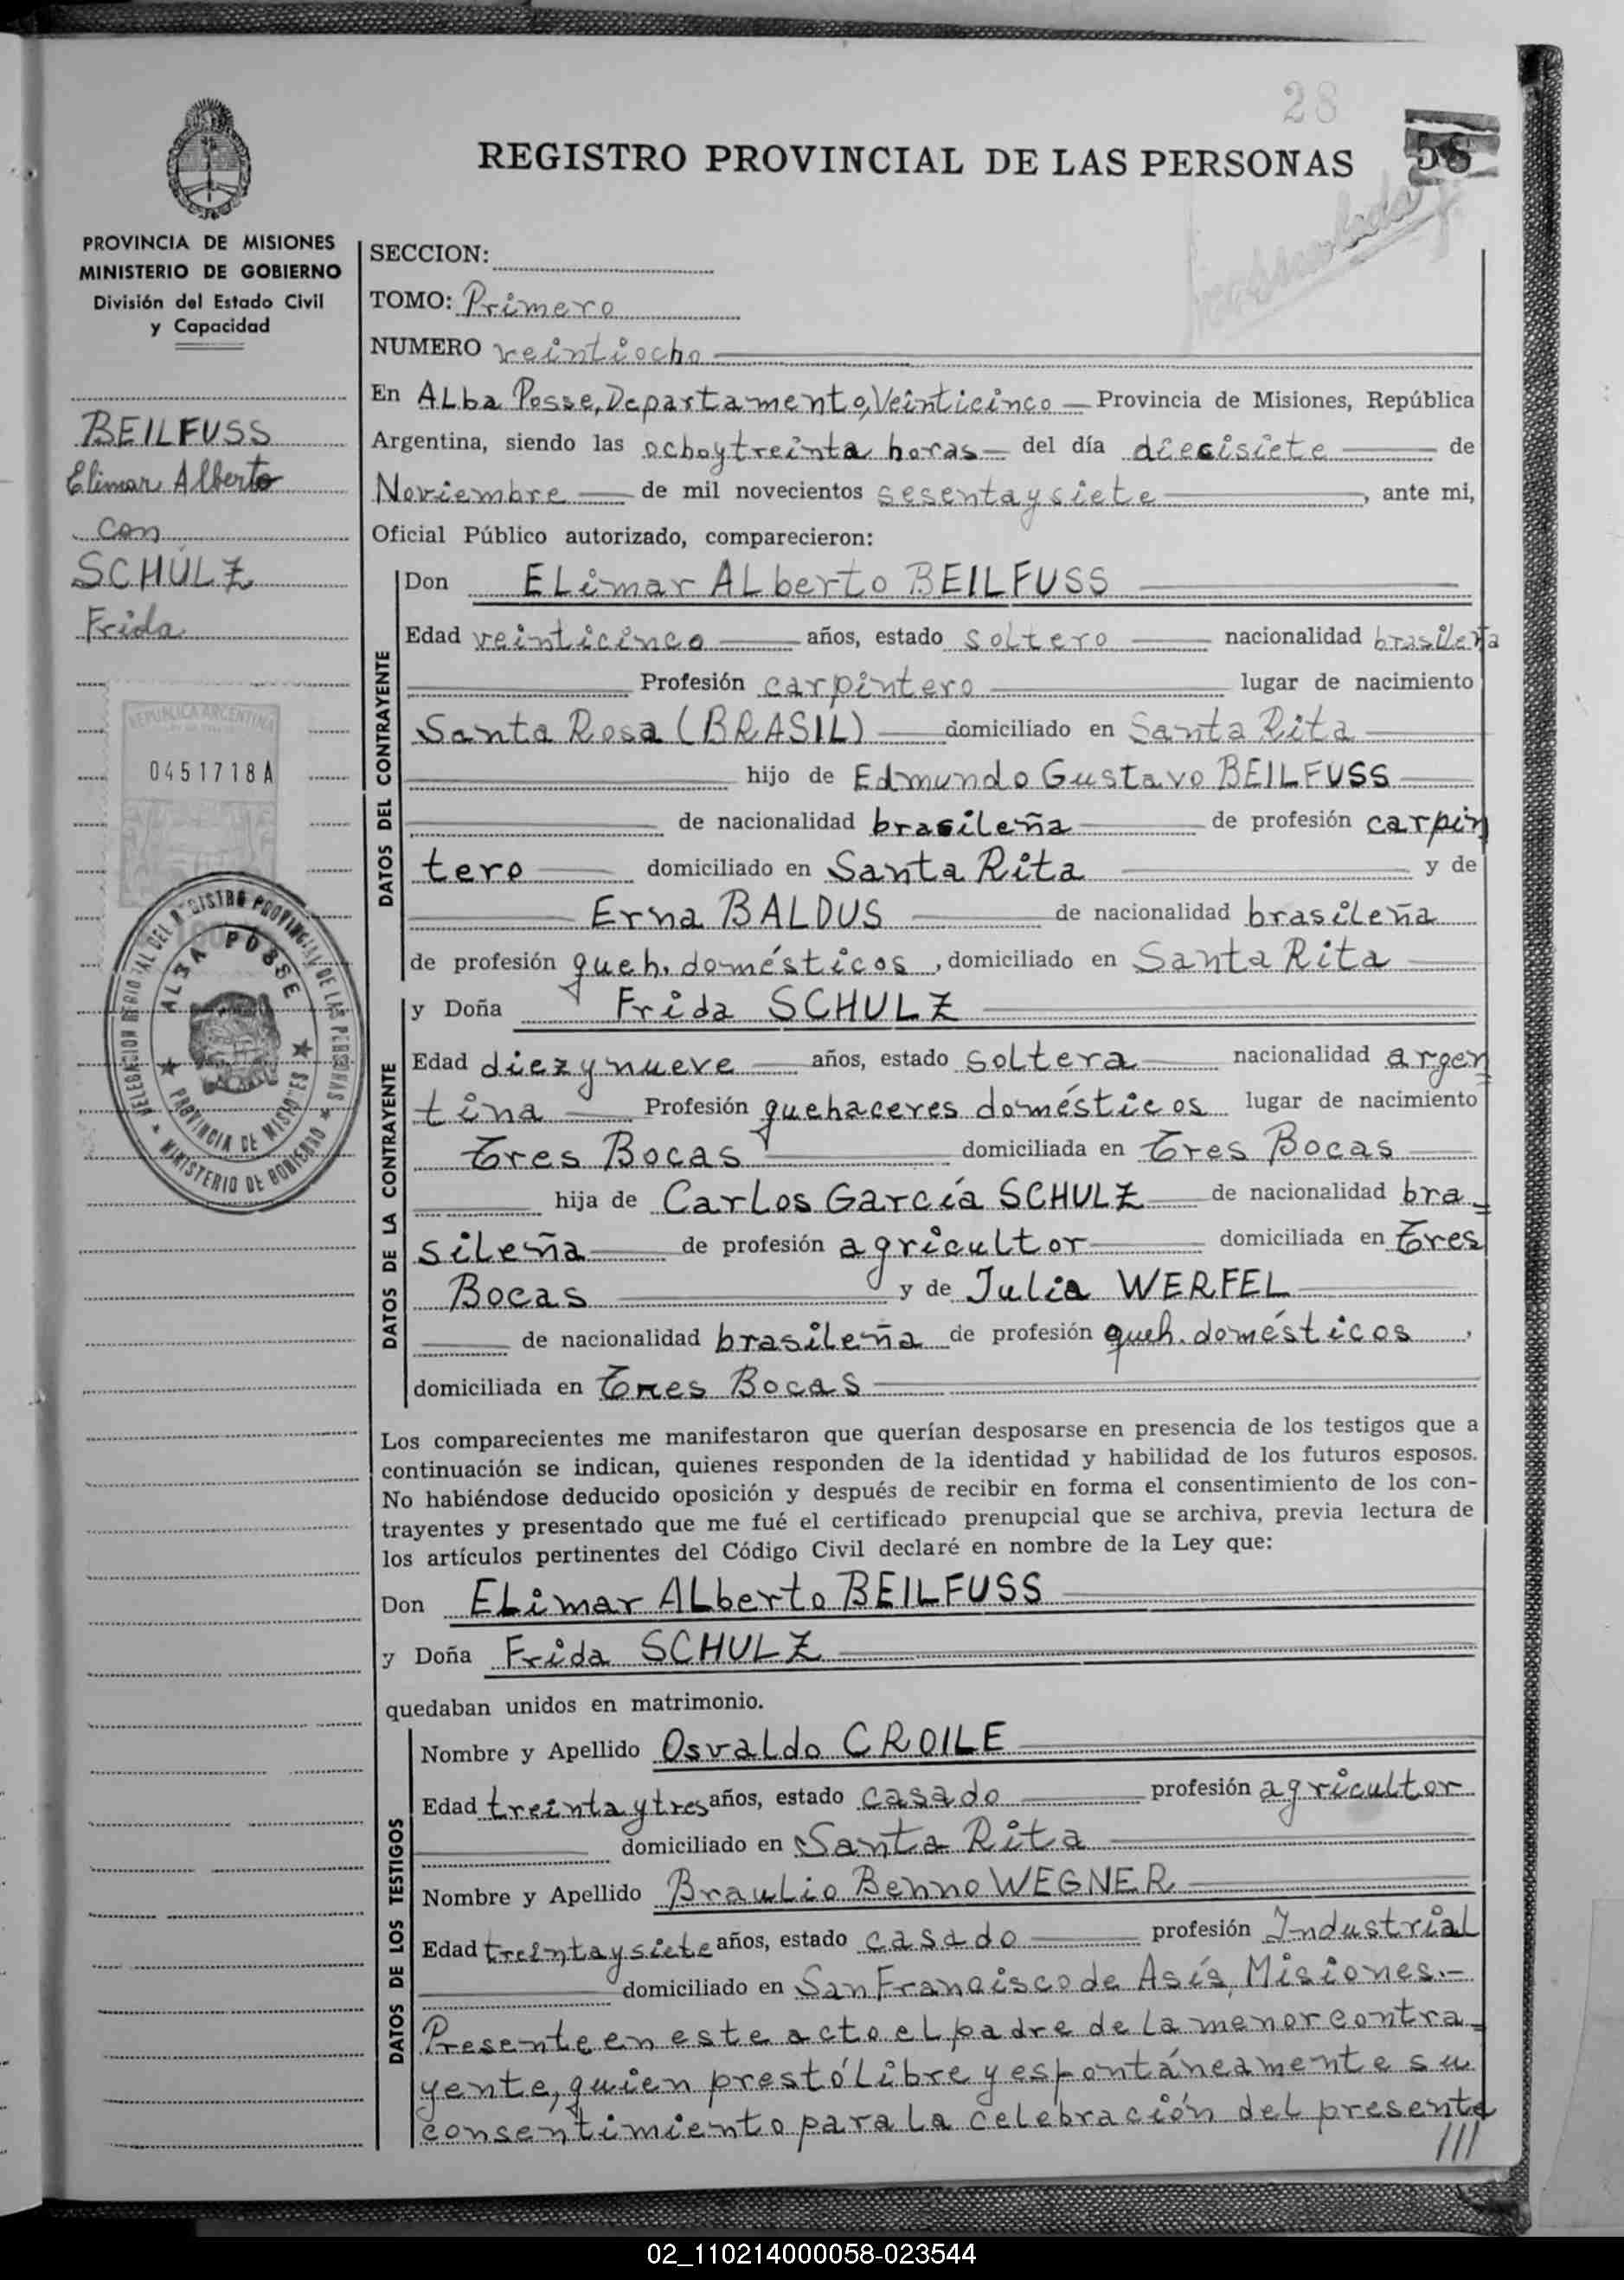 28
REGISTRO PROVINCIAL DE LAS PERSONAS
58
PROVINCIA DE MISIONES
MINISTERIO DE GOBIERNO
División del Estado Civil
y Capacidad
BEILFUSS
Elimar Alberto
con
SCHULZ
Frida
REPUBLICA ARGENTINA
0451718A
DELEGACION REGIONAL DEL REGISTRO PROVINCIAL DE LAS PERSONAS
ALBA POSSE
PROVINCIA DE MISIONES
MINISTERIO DE GOBIERNO
SECCION:
TOMO: Primero
NUMERO veintiocho
En ALba Posse, Departamento, Veinticinco Provincia de Misiones, República
Argentina, siendo las ocho y treinta horas del día diecisiete de
Noviembre de mil novecientos sesenta y siete, ante mi,
Oficial Público autorizado, comparecieron:
DATOS DEL CONTRAYENTE
Don ELimar ALberto BEILFUSS
Edad veinticinco años, estado soltero nacionalidad brasileña
Profesión carpintero lugar de nacimiento
Santa Rosa (BRASIL) domiciliado en Santa Rita
hijo de Edmundo Gustavo BEILFUSS
de nacionalidad brasileña de profesión carpin
tero domiciliado en Santa Rita y de
Erna BALDUS de nacionalidad brasileña
de profesión queh. domésticos, domiciliado en Santa Rita
DATOS DE LA CONTRAYENTE
y Doña Frida SCHULZ
Edad diez y nueve años, estado soltera nacionalidad argen
tina Profesión quehaceres domésticos lugar de nacimiento
Tres Bocas domiciliada en Tres Bocas
hija de Carlos García SCHULZ de nacionalidad bra
sileña de profesión agricultor domiciliada en Tres
Bocas y de Julia WERFEL
de nacionalidad brasileña de profesión queh. domésticos,
domiciliada en Tres Bocas
Los comparecientes me manifestaron que querían desposarse en presencia de los testigos que a
continuación se indican, quienes responden de la identidad y habilidad de los futuros esposos.
No habiéndose deducido oposición y después de recibir en forma el consentimiento de los con-
trayentes y presentado que me fué el certificado prenupcial que se archiva, previa lectura de
los artículos pertinentes del Código Civil declaré en nombre de la Ley que:
Don ELimar ALberto BEILFUSS
y Doña Frida SCHULZ
quedaban unidos en matrimonio.
DATOS DE LOS TESTIGOS
Nombre y Apellido Osvaldo CROILE
Edad treinta y tres años, estado casado profesión agricultor
domiciliado en Santa Rita
Nombre y Apellido Braulio Benno WEGNER
Edad treinta y siete años, estado casado profesión Industrial
domiciliado en San Francisco de Asís, Misiones.-
Presente en este acto el padre de la menor contra
yente, quien prestó libre y espontáneamente su
consentimiento para la celebración del presente
///
02_110214000058-023544